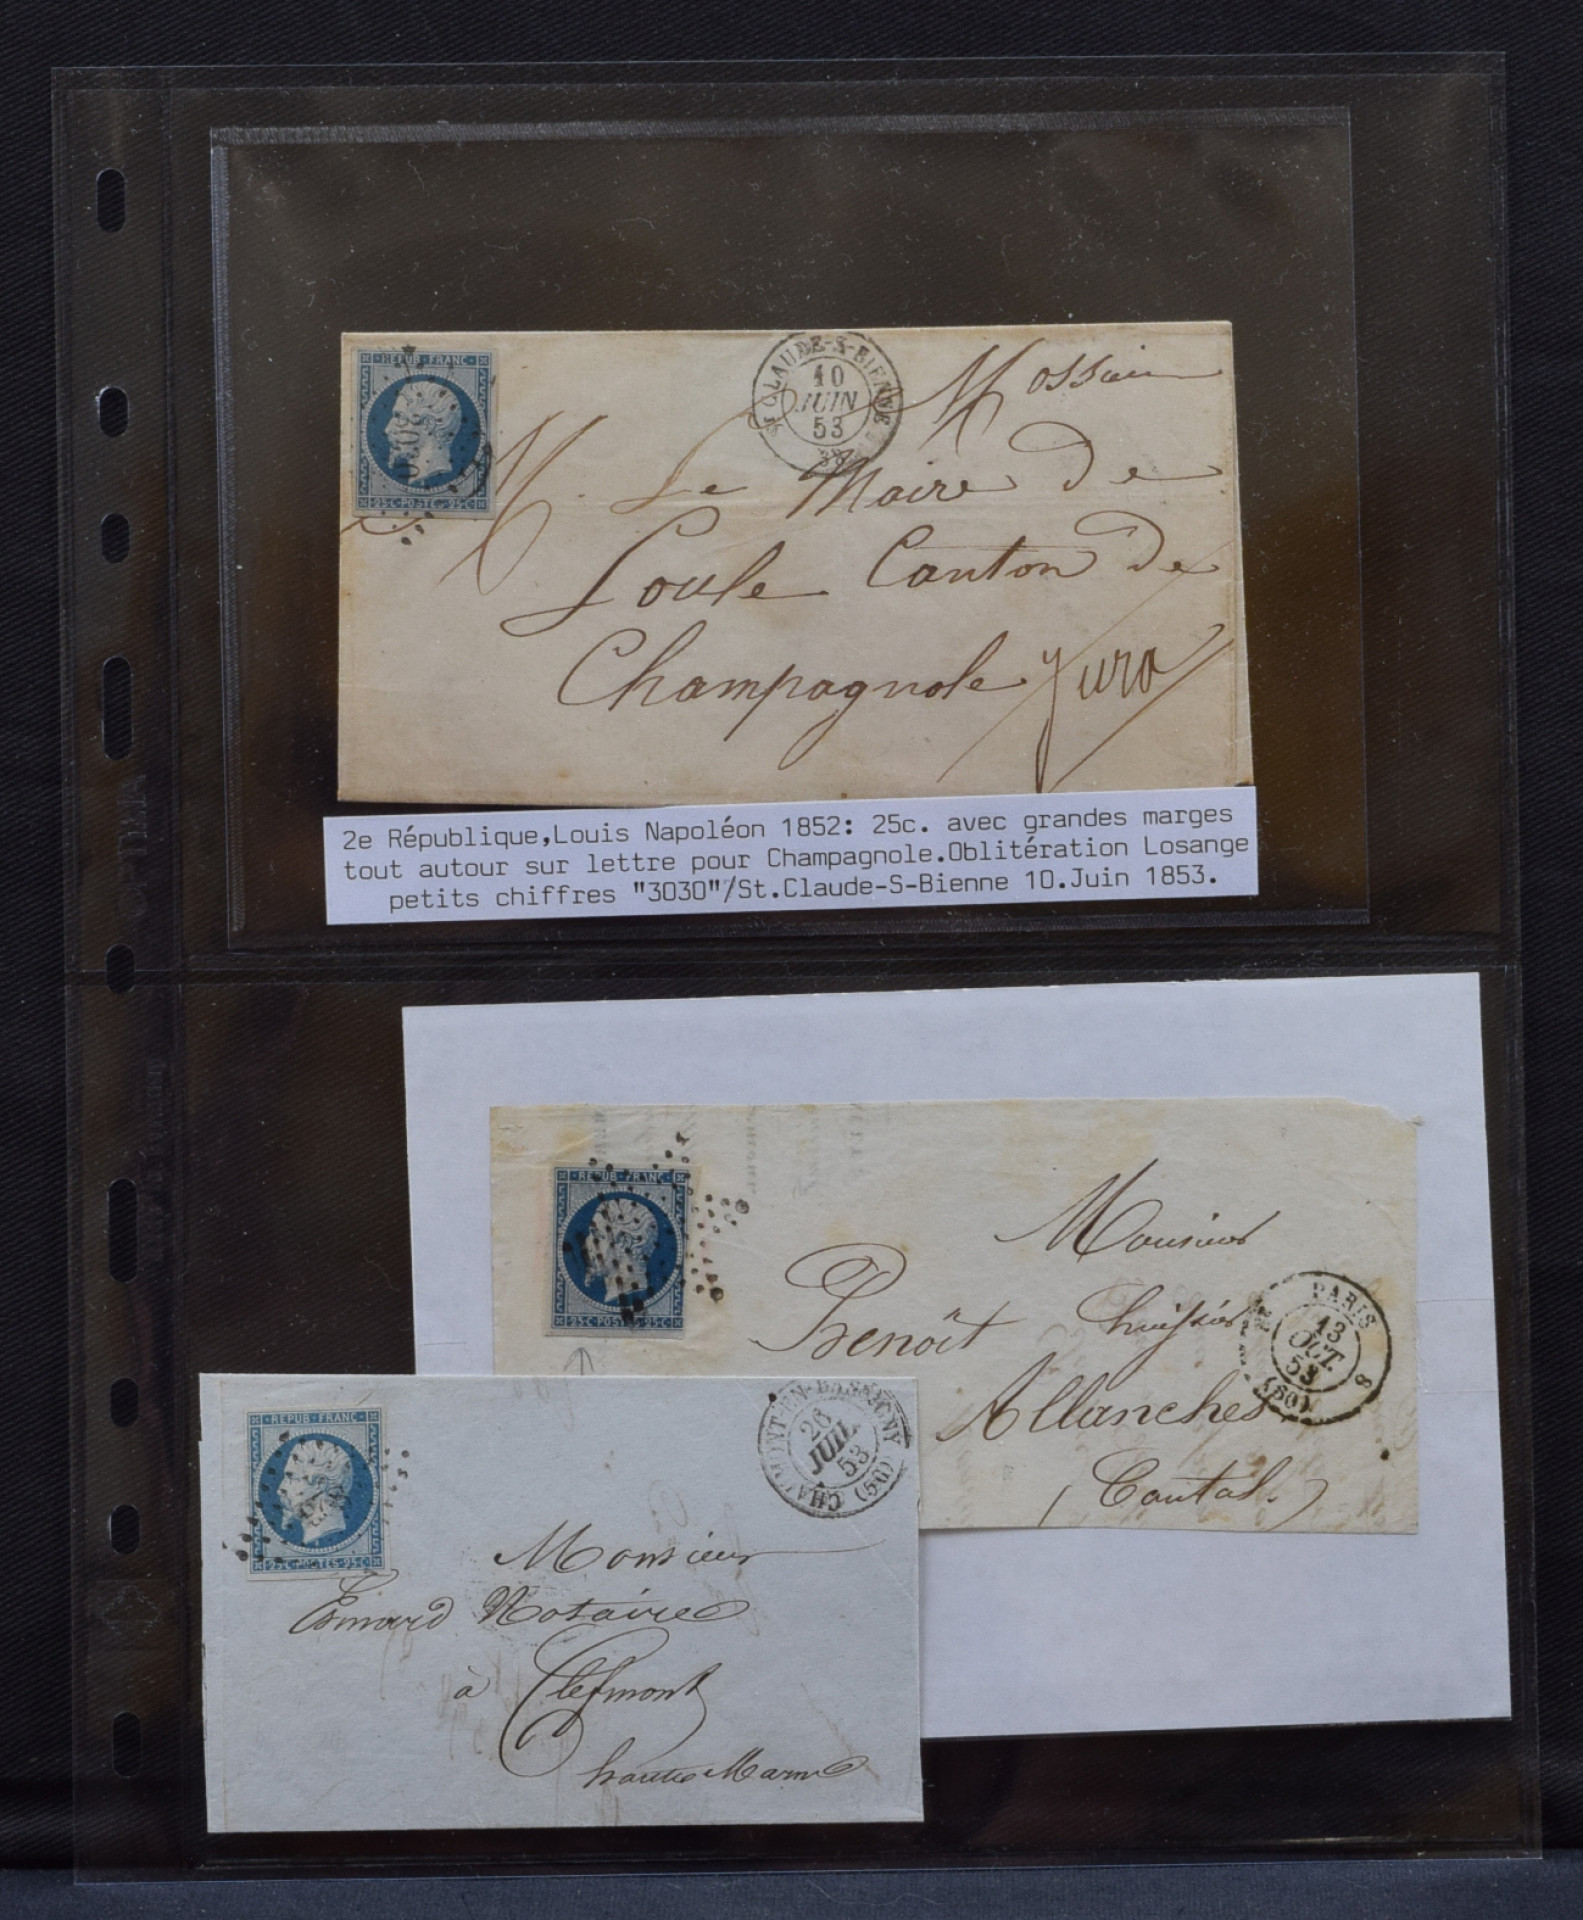 REPUB·FRANC
3030
25·C·POSTES·25·C
ST CLAUDE-S-BIENNE
10
JUIN
53
38
M. Le Maire de
Loule Canton de
Champagnole Jura
2e République,Louis Napoléon 1852: 25c. avec grandes marges
tout autour sur lettre pour Champagnole.Oblitération Losange
petits chiffres "3030"/St.Claude-S-Bienne 10.Juin 1853.
REPUB·FRANC
25·C·POSTES·25·C
Monsieur
Benoît huissier
Allanches
(Cantal.)
PARIS
13
OCT.
53
(60)
REPUB·FRANC
25·C·POSTES·25·C
CHAUMONT-EN-BASSIGNY
26
JUIL.
53
(50)
Monsieur
Notaire
à Clefmont
haute Marne